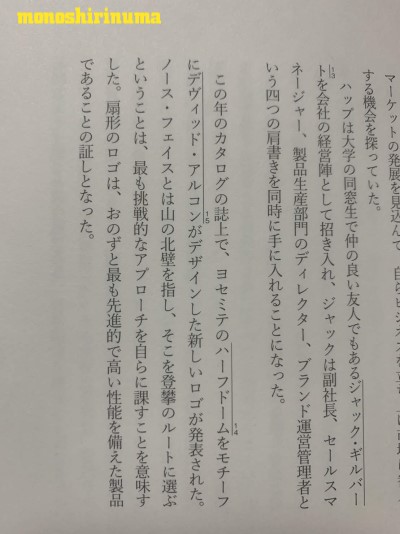 monoshirinuma
マーケットの発展を見込んで、自らビジネスを
する機会を探っていた。
ハップは大学の同窓生で仲の良い友人でもあるジャック・ギルバー
トを会社の経営陣として招き入れ、ジャックは副社長、セールスマ
13
ネージャー、製品生産部門のディレクター、ブランド運営管理者と
いう四つの肩書きを同時に手に入れることになった。
この年のカタログの誌上で、ヨセミテのハーフドームをモチーフ
14
にデヴィッド・アルコンがデザインした新しいロゴが発表された。
15
ノース・フェイスとは山の北壁を指し、そこを登攀のルートに選ぶ
ということは、最も挑戦的なアプローチを自らに課すことを意味す
した。扇形のロゴは、おのずと最も先進的で高い性能を備えた製品
であることの証しとなった。